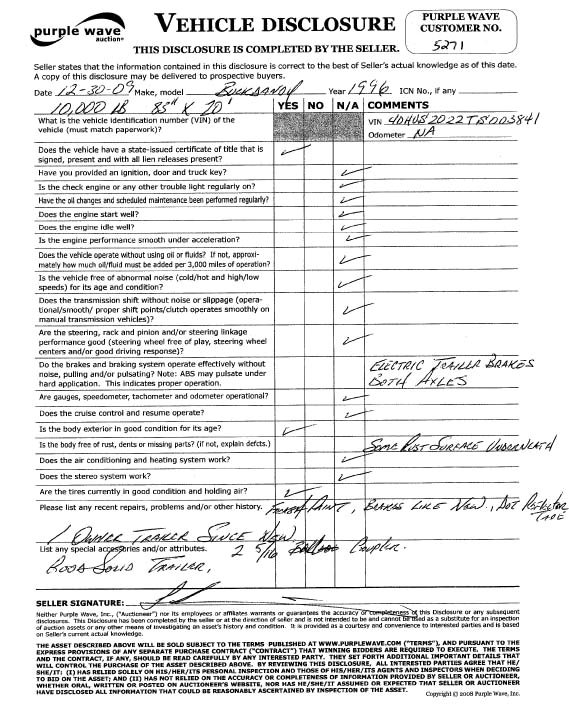 purple wave
auction®
VEHICLE DISCLOSURE
THIS DISCLOSURE IS COMPLETED BY THE SELLER.
PURPLE WAVE
CUSTOMER NO.
5271
Seller states that the information contained in this disclosure is correct to the best of Seller's actual knowledge as of this date.
A copy of this disclosure may be delivered to prospective buyers.
Date 12-30-09 Make, model BUCKDANDY Year 1996 ICN No., if any
10,000 LB 83" X 20' YES NO N/A COMMENTS
What is the vehicle identification number (VIN) of the
vehicle (must match paperwork)?
VIN
Odometer NA
Does the vehicle have a state-issued certificate of title that is
signed, present and with all lien releases present?
Have you provided an ignition, door and truck key?
Is the check engine or any other trouble light regularly on?
Have the oil changes and scheduled maintenance been performed regularly?
Does the engine start well?
Does the engine idle well?
Is the engine performance smooth under acceleration?
Does the vehicle operate without using oil or fluids? If not, approxi-
mately how much oil/fluid must be added per 3,000 miles of operation?
Is the vehicle free of abnormal noise (cold/hot and high/low
speeds) for its age and condition?
Does the transmission shift without noise or slippage (opera-
tional/smooth/ proper shift points/clutch operates smoothly on
manual transmission vehicles)?
Are the steering, rack and pinion and/or steering linkage
performance good (steering wheel free of play, steering wheel
centers and/or good driving response)?
Do the brakes and braking system operate effectively without
noise, pulling and/or pulsating? Note: ABS may pulsate under
hard application. This indicates proper operation.
ELECTRIC TRAILER BRAKES
BOTH AXLES
Are gauges, speedometer, tachometer and odometer operational?
Does the cruise control and resume operate?
Is the body exterior in good condition for its age?
Is the body free of rust, dents or missing parts? (if not, explain defcts.)
SOME RUST SURFACE UNDERNEATH
Does the air conditioning and heating system work?
Does the stereo system work?
Are the tires currently in good condition and holding air?
Please list any recent repairs, problems and/or other history. FRESH PAINT, BRAKES LIKE NEW, DOT REFLECTOR TAPE
1 OWNER TRAILER SINCE NEW
List any special accessories and/or attributes. 2 5/16 COUPLER.
GOOD SOLID TRAILER,
SELLER SIGNATURE:
Neither Purple Wave, Inc., ("Auctioneer") nor its employees or affiliates warrants or guarantees the accuracy or completeness of this Disclosure or any subsequent
disclosures. This Disclosure has been completed by the seller or at the direction of seller and is not intended to and cannot be used as a substitute for an inspection
of auction assets or any other means of investigating an asset's history and condition. It is provided as a courtesy and convenience to interested parties and is based
on Seller's current actual knowledge.
THE ASSET DESCRIBED ABOVE WILL BE SOLD SUBJECT TO THE TERMS PUBLISHED AT WWW.PURPLEWAVE.COM ("TERMS"), AND PURSUANT TO THE
EXPRESS PROVISIONS OF ANY SEPARATE PURCHASE CONTRACT ("CONTRACT") THAT WINNING BIDDERS ARE REQUIRED TO EXECUTE. THE TERMS
AND THE CONTRACT, IF ANY, SHOULD BE READ CAREFULLY BY ANY INTERESTED PARTY. THEY SET FORTH ADDITIONAL IMPORTANT DETAILS THAT
WILL CONTROL THE PURCHASE OF THE ASSET DESCRIBED ABOVE. BY REVIEWING THIS DISCLOSURE, ALL INTERESTED PARTIES AGREE THAT HE/
SHE/IT: (I) HAS RELIED SOLELY ON HIS/HER/ITS PERSONAL INSPECTION AND THOSE OF HIS/HER/ITS AGENTS AND INSPECTORS WHEN DECIDING
TO BID ON THE ASSET; AND (II) HAS NOT RELIED ON THE ACCURACY OR COMPLETENESS OF INFORMATION PROVIDED BY SELLER OR AUCTIONEER,
WHETHER ORAL, WRITTEN OR POSTED ON AUCTIONEER'S WEBSITE, NOR HAS HE/SHE/IT ASSUMED OR EXPECTED THAT SELLER OR AUCTIONEER
HAVE DISCLOSED ALL INFORMATION THAT COULD BE REASONABLY ASCERTAINED BY INSPECTION OF THE ASSET.
Copyright © 2008 Purple Wave, Inc.